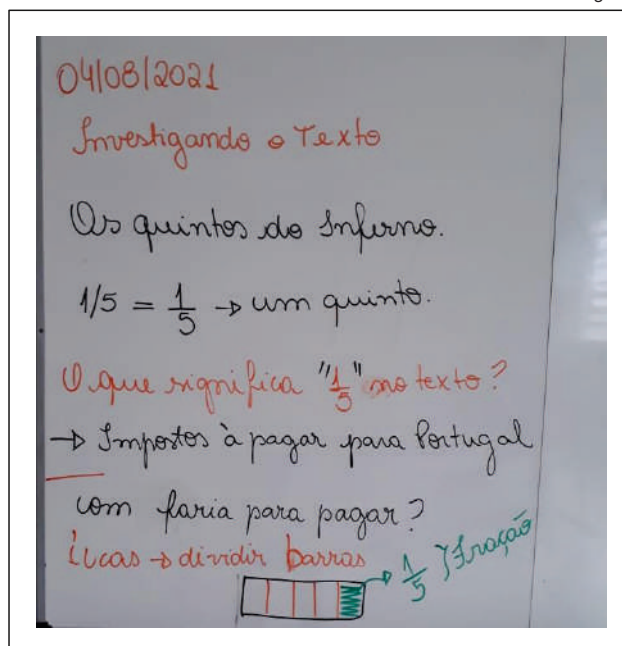 04/08/2021
Investigando o Texto
Os quintos do Inferno.
1/5 = 1/5 → um quinto.
O que significa "1/5" no texto?
→ Impostos à pagar para Portugal
com faria para pagar?
Lucas → dividir barras → 1/5 } Fração